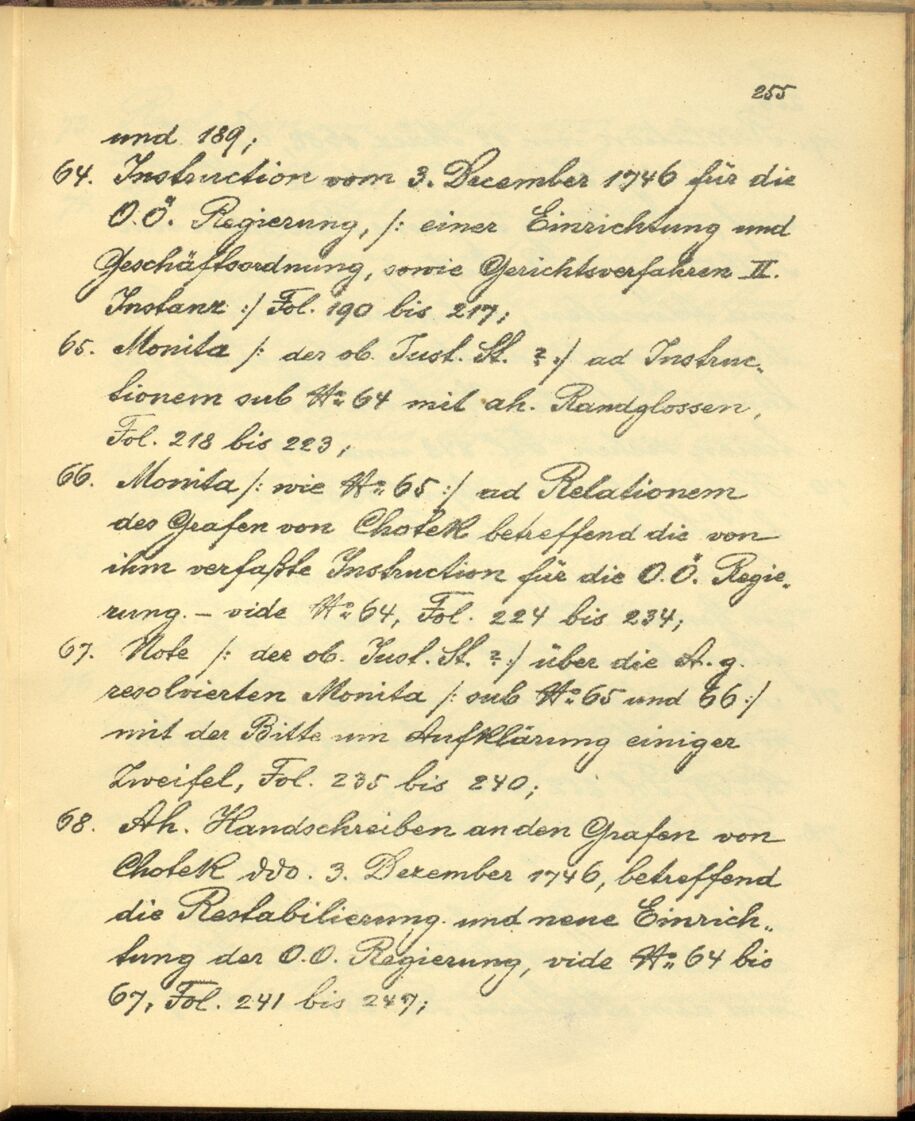 255
und 189;
64. Instruction vom 3. December 1746 für die
O.Ö. Regierung, /: einer Einrichtung und
Geschäftsordnung, sowie Gerichtsverfahren II.
Instanz :/ Fol. 190 bis 217;
65. Monita /: der ob. Just. St. ? :/ ad Instruc-
tionem sub No 64 mit ah. Randglossen,
Fol. 218 bis 223;
66. Monita /: wie No 65 :/ ad Relationem
des Grafen von Chotek betreffend die von
ihm verfaßte Instruction für die O.Ö. Regie-
rung. – vide No 64, Fol. 224 bis 234;
67. Note /: der ob. Just. St. ? :/ über die A. g.
resolvierten Monita /: sub No 65 und 66 :/
mit der Bitte um Aufklärung einiger
Zweifel, Fol. 235 bis 240;
68. Ah. Handschreiben an den Grafen von
Chotek ddo. 3. Dezember 1746, betreffend
die Restabilierung und neue Einrich-
tung der O.O. Regierung, vide No 64 bis
67, Fol. 241 bis 247;